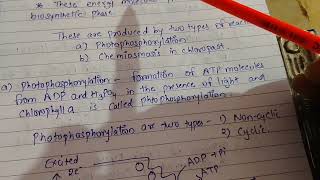 * These energy molecule
biosynthetic phase
These are produced by two types of react
a) Photophosphorylation
b) Chemiosmosis in chloroplast
a) Photophosphorylation - formation of ATP molecules
from ADP and H3PO4 in the presence of light and
chlorophyll a is called photophosphorylation
Photophosphorylation are two types - 1) Non-cyclic
2) Cyclic
Excited
2e-
ADP + Pi
ATP